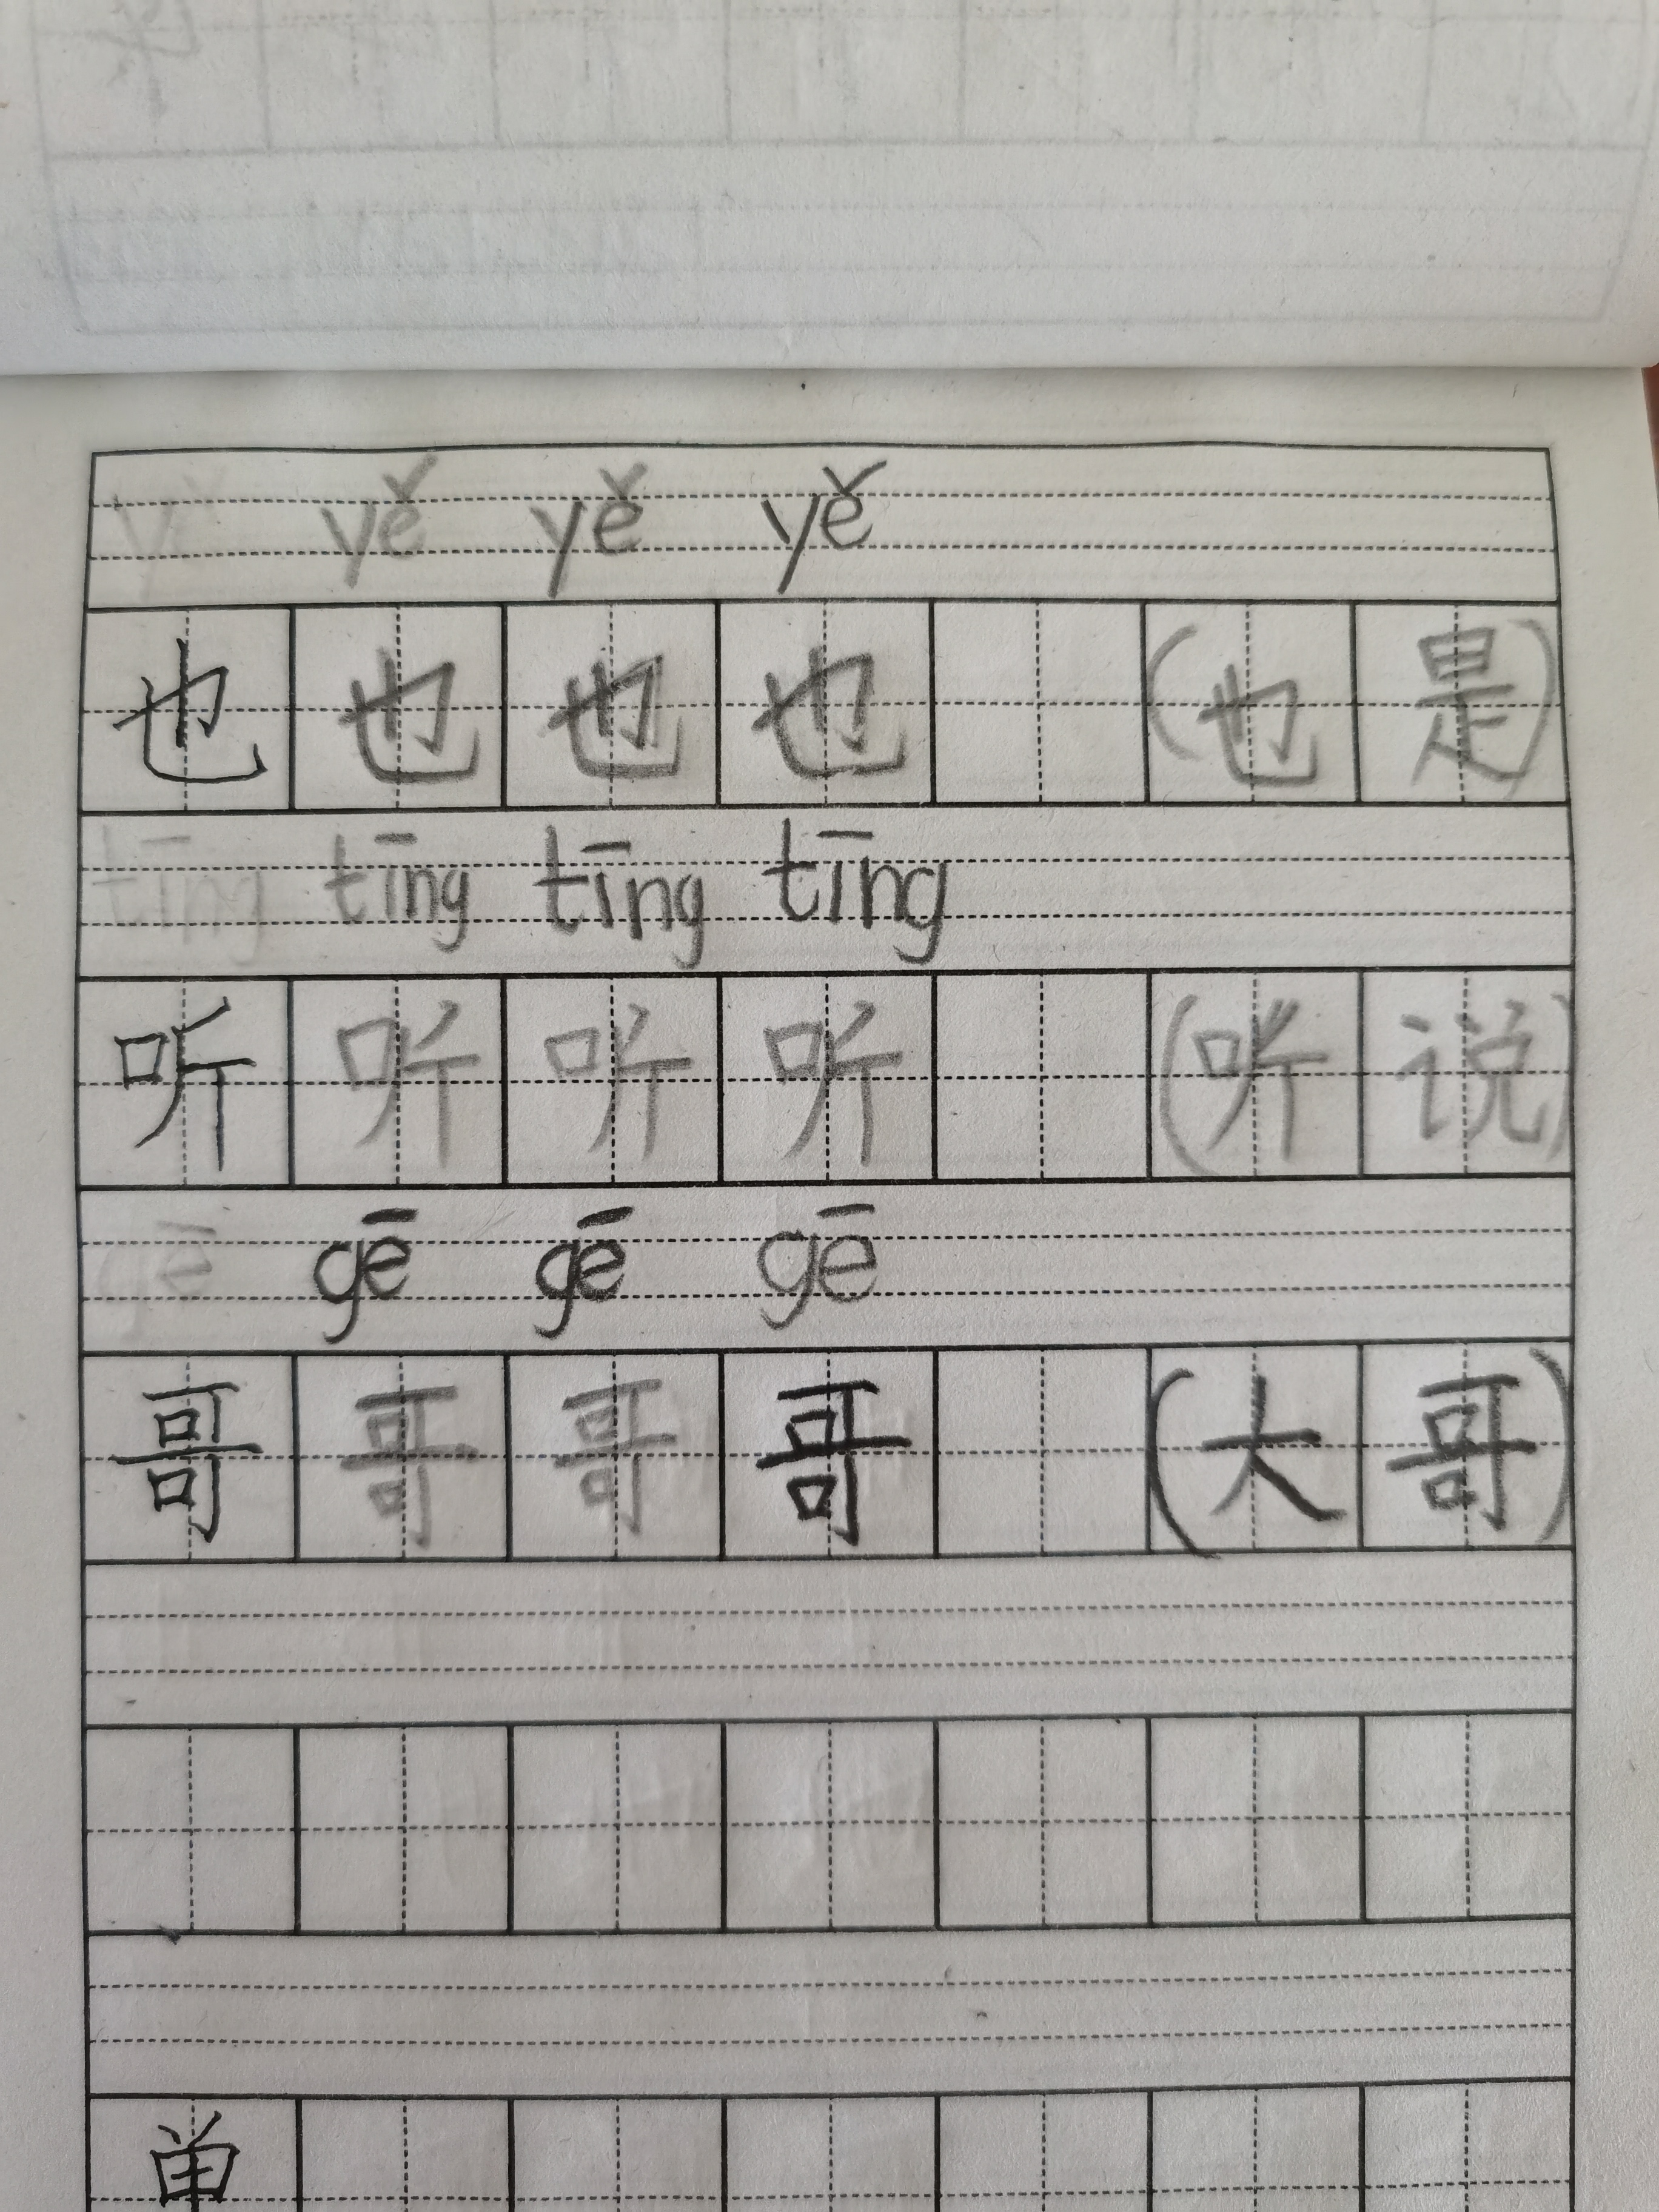 yě yě yě
也 也 也 也 (也 是)
tīng tīng tīng tīng
听 听 听 听 (听 说)
gē gē gē
哥 哥 哥 哥 (大 哥)